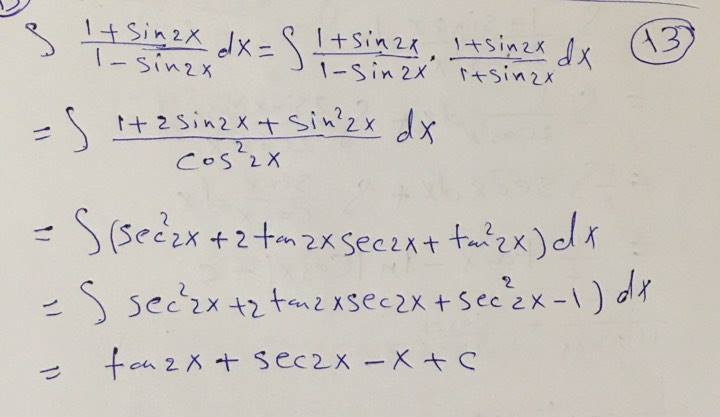 ∫ (1+sin2x)/(1-sin2x) dx = ∫ (1+sin2x)/(1-sin2x) · (1+sin2x)/(1+sin2x) dx (13)
= ∫ (1+2sin2x+sin²2x)/(cos²2x) dx
= ∫(sec²2x+2tan2xsec2x+tan²2x)dx
= ∫ sec²2x+2tan2xsec2x+sec²2x-1) dx
= tan2x+sec2x-x+c